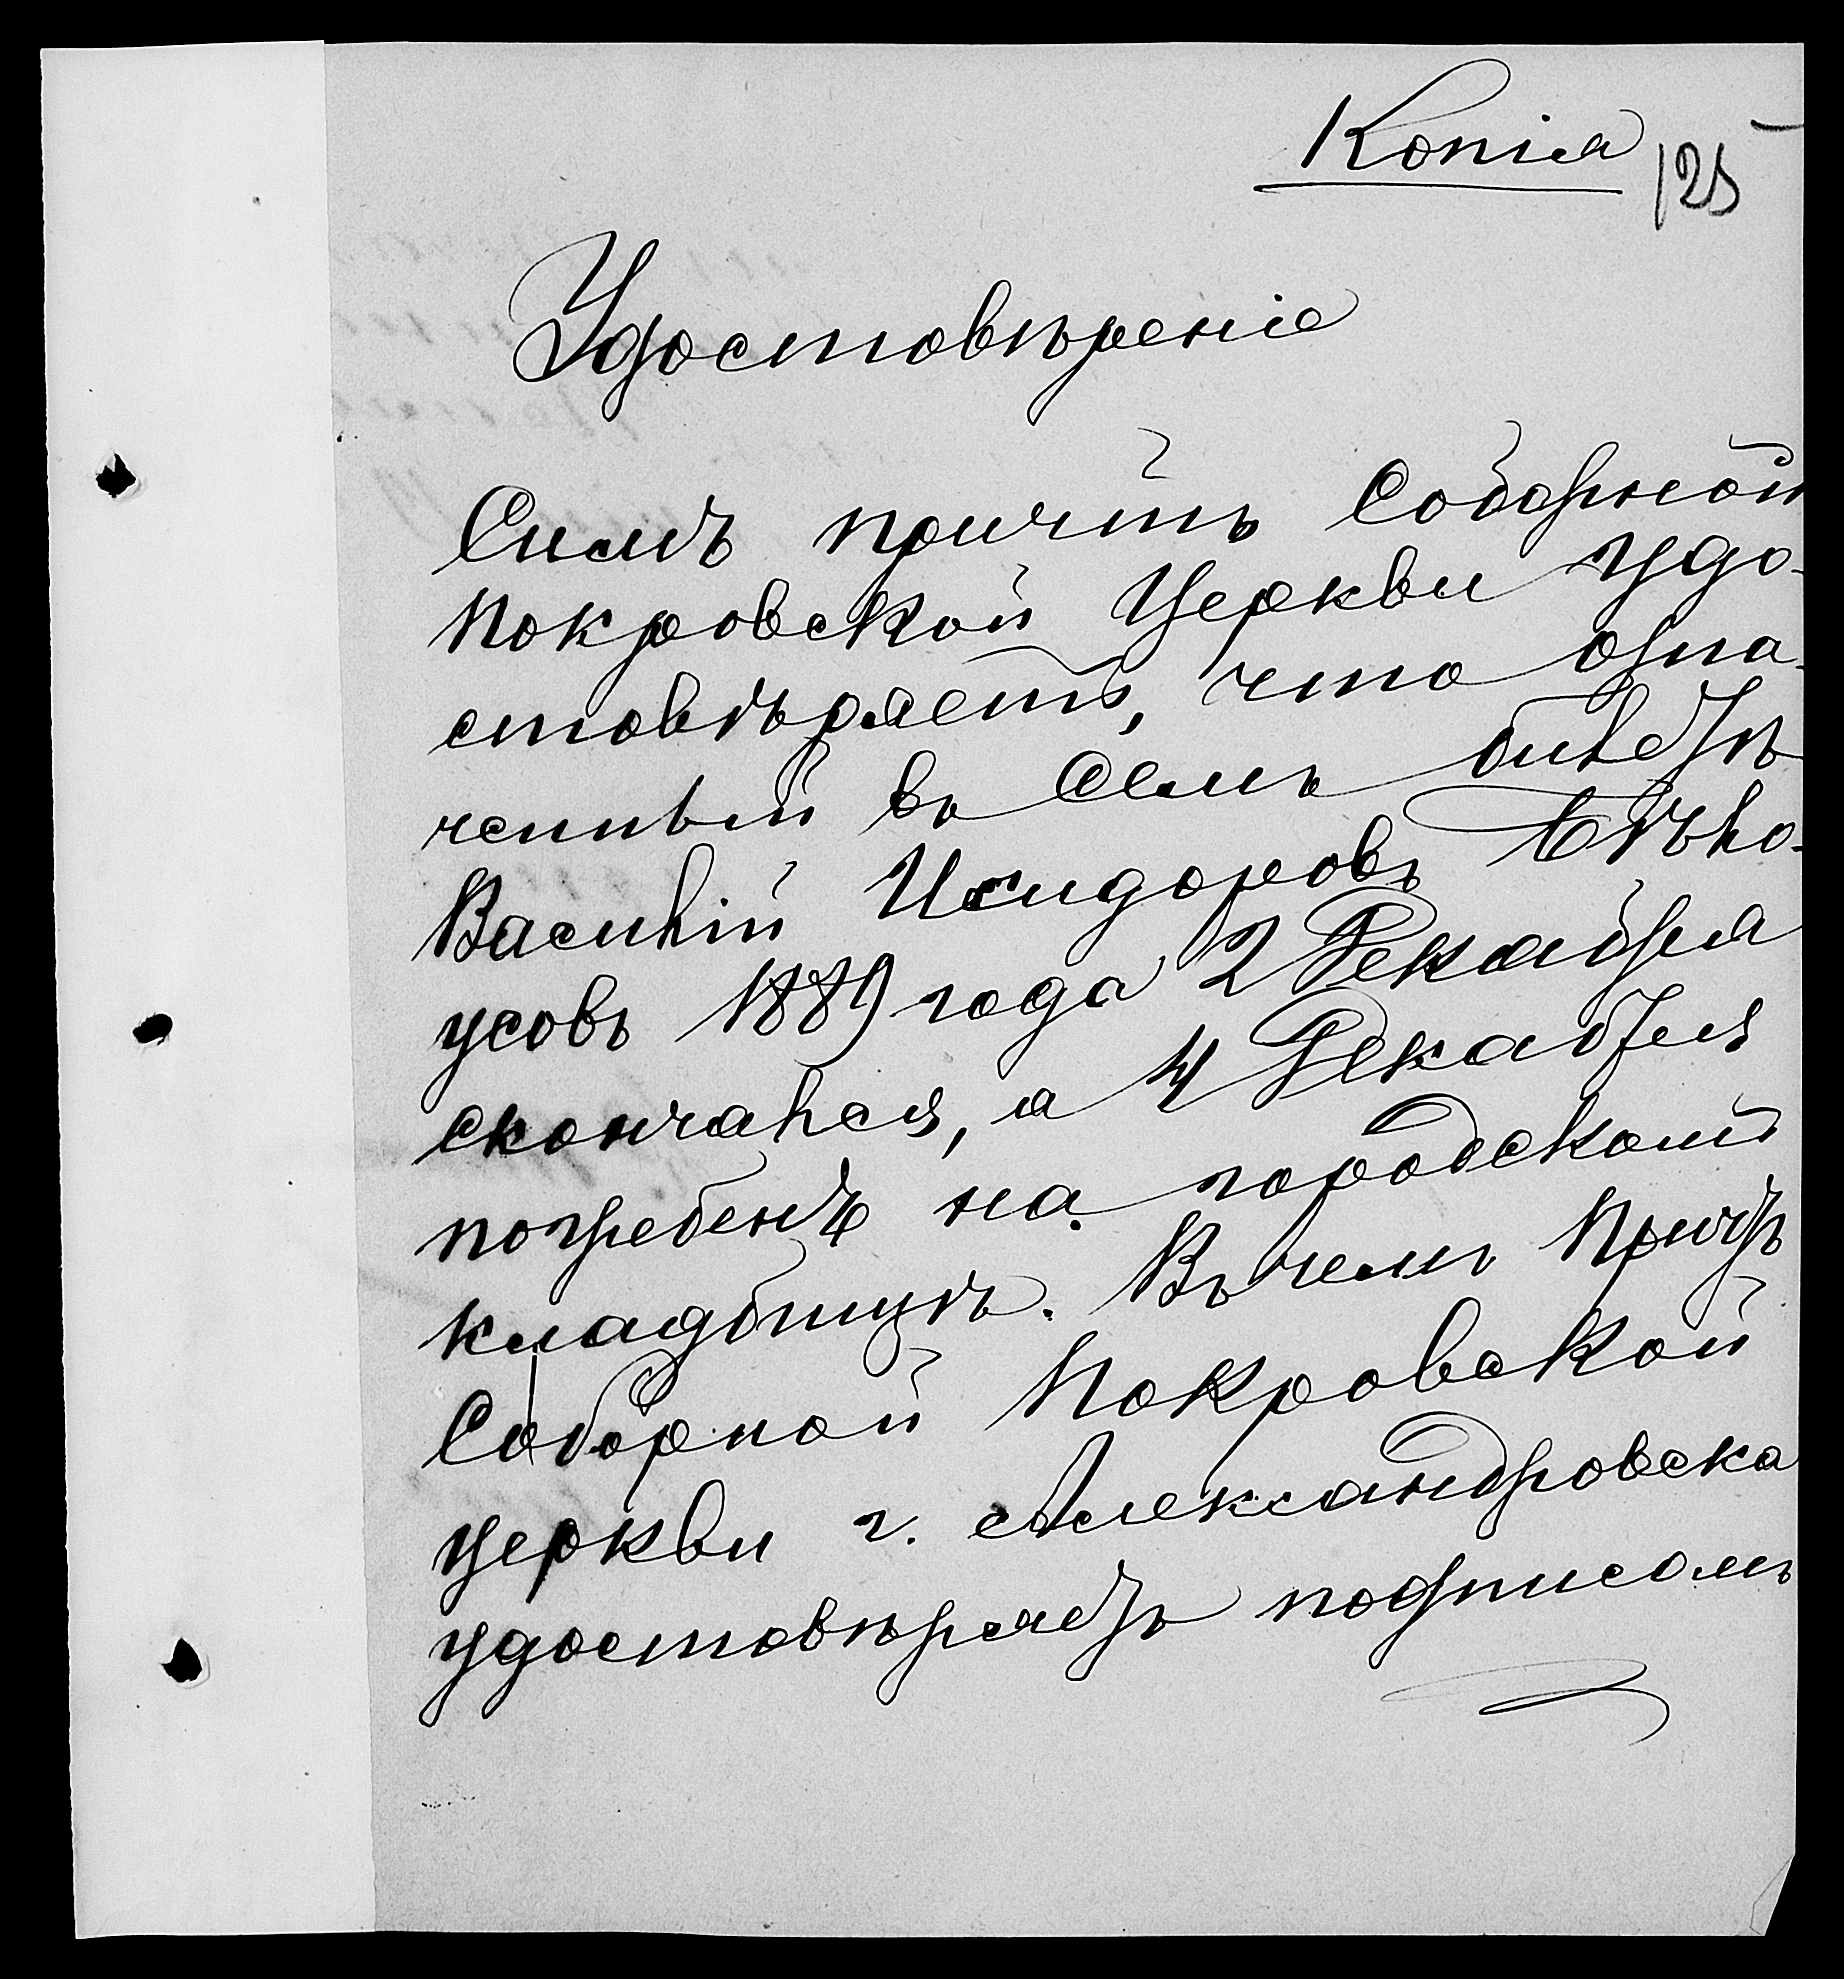 Копія 125
Удостовѣреніе
Симъ причтъ Соборной
Покровской Церкви удо-
стовѣряетъ, что озна-
ченный въ семъ билетѣ
Василій Исидоровъ Бѣло-
усовъ 1889 года 2 Декабря
скончался, а 4 Декабря
погребенъ на городскомъ
кладбищѣ. Въ чемъ Причтъ
Соборной Покровской
церкви г. Александровска
удостовѣряетъ подписомъ